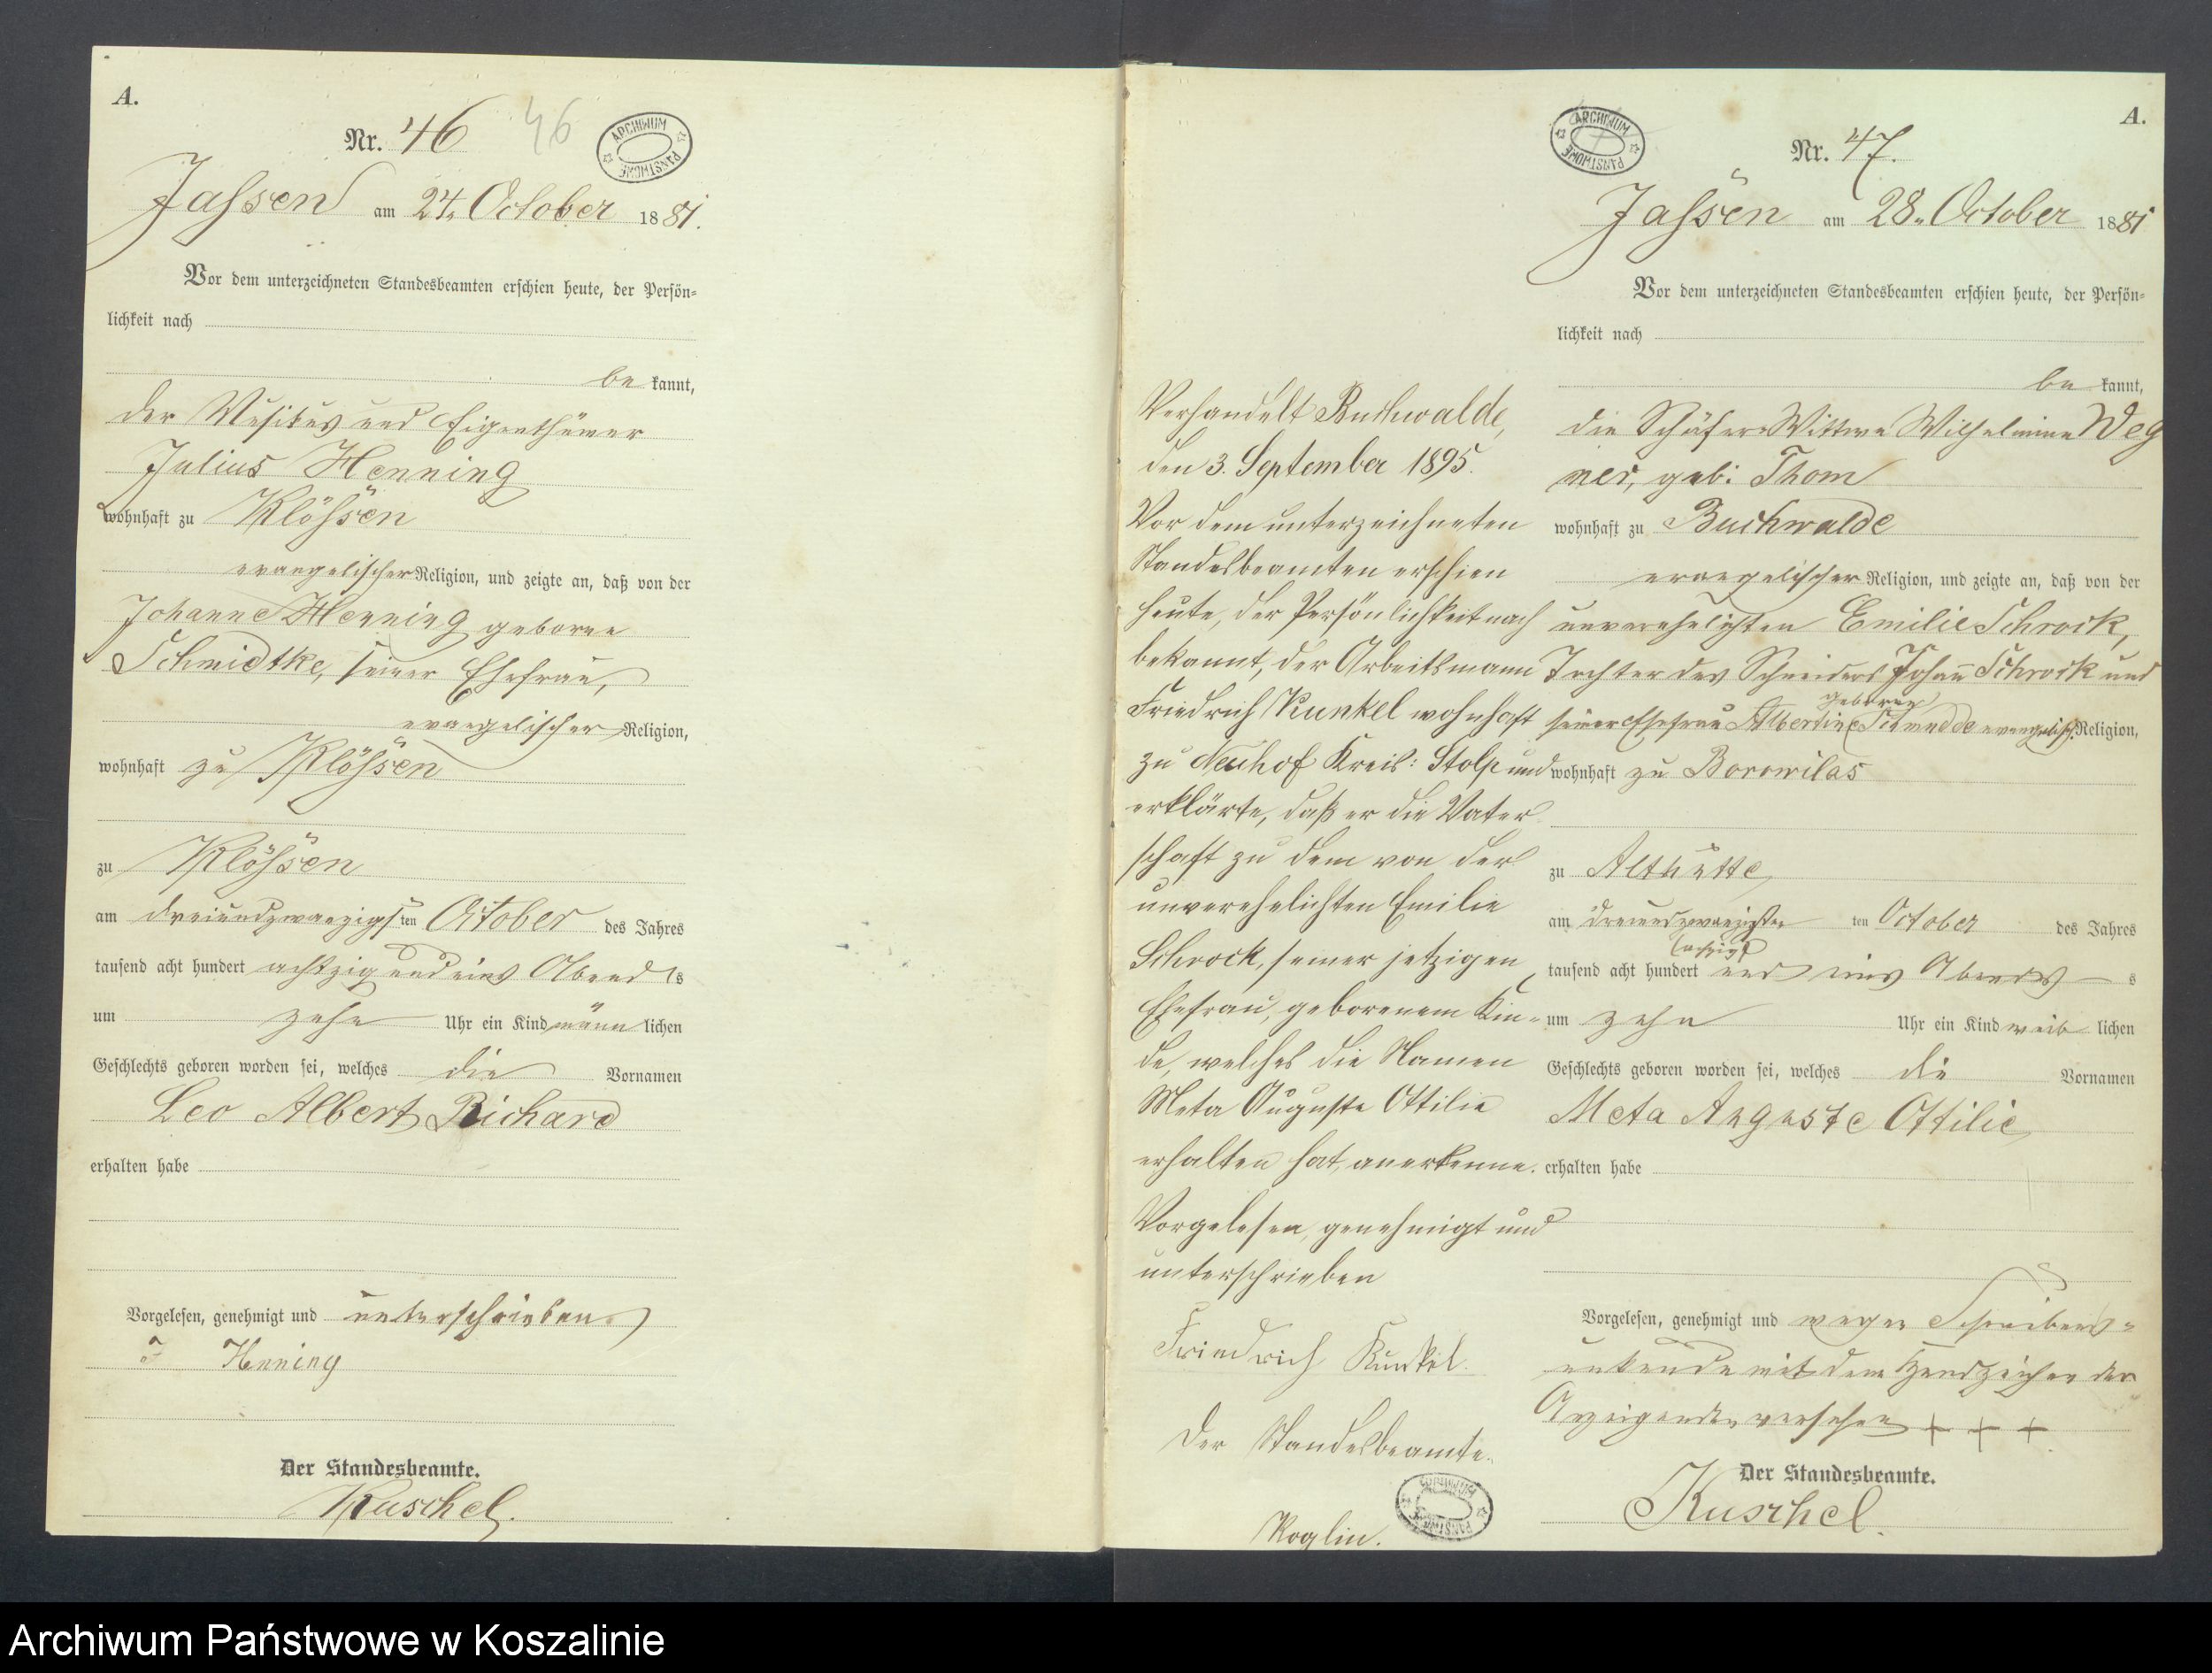 A.
Nr. 46 46
ARCHIWUM PAŃSTWOWE
Jassen am 24. October 1881.
Vor dem unterzeichneten Standesbeamten erschien heute, der Persön=
lichkeit nach
be kannt,
der Musikus und Eigenthümer
Julius Henning
wohnhaft zu Klössen
evangelischer Religion, und zeigte an, daß von der
Johanne Henning geborne
Schmidtke, seiner Ehefrau,
evangelischer Religion,
wohnhaft zu Klössen
zu Klössen
am dreiundzwanzigsten October des Jahres
tausend acht hundert achtzig und eins Abends
um zehn Uhr ein Kind männ lichen
Geschlechts geboren worden sei, welches die Vornamen
Leo Albert Richard
erhalten habe
Vorgelesen, genehmigt und unterschrieben.
J Henning
Der Standesbeamte.
Kuschel.
Verhandelt Buchwalde,
den 3. September 1895.
Vor dem unterzeichneten
Standesbeamten erschien
heute, der Persönlichkeit nach
bekannt, der Arbeitsmann
Friedrich Kunkel wohnhaft
zu Neuhof Kreis: Stolp und
erklärte, daß er die Vater
schaft zu dem von der
unverehelichten Emilie
Schrock, seiner jetzigen
Ehefrau, geborenem Kin=
de, welches die Namen
Meta Auguste Ottilie
erhalten hat, anerkenne.
Vorgelesen, genehmigt und
unterschrieben
Friedrich Kunkel.
Der Standesbeamte.
Roglin.
ARCHIWUM PAŃSTWOWE
A.
ARCHIWUM PAŃSTWOWE
Nr. 47.
Jassen am 28. October 1881
Vor dem unterzeichneten Standesbeamten erschien heute, der Persön=
lichkeit nach
be kannt,
die Schäfer Wittwe Wilhelmine Weg
ner, geb: Thom
wohnhaft zu Buchwalde
evangelischer Religion, und zeigte an, daß von der
unverehelichten Emilie Schrock,
Tochter des Schneiders Johann Schrock und
geborene
seiner Ehefrau Albertine evangelisch. Religion,
wohnhaft zu Borowilas
zu Althütte
am dreiundzwanzigsten ten October des Jahres
achtzig
tausend acht hundert und eins Abends s
um zehn Uhr ein Kind weib lichen
Geschlechts geboren worden sei, welches die Vornamen
Meta Auguste Ottilie
erhalten habe
Vorgelesen, genehmigt und wegen Schreibens=
unkunde mit dem Handzeichen der
Anzeigenden versehen + + +
Der Standesbeamte.
Kuschel.
Archiwum Państwowe w Koszalinie